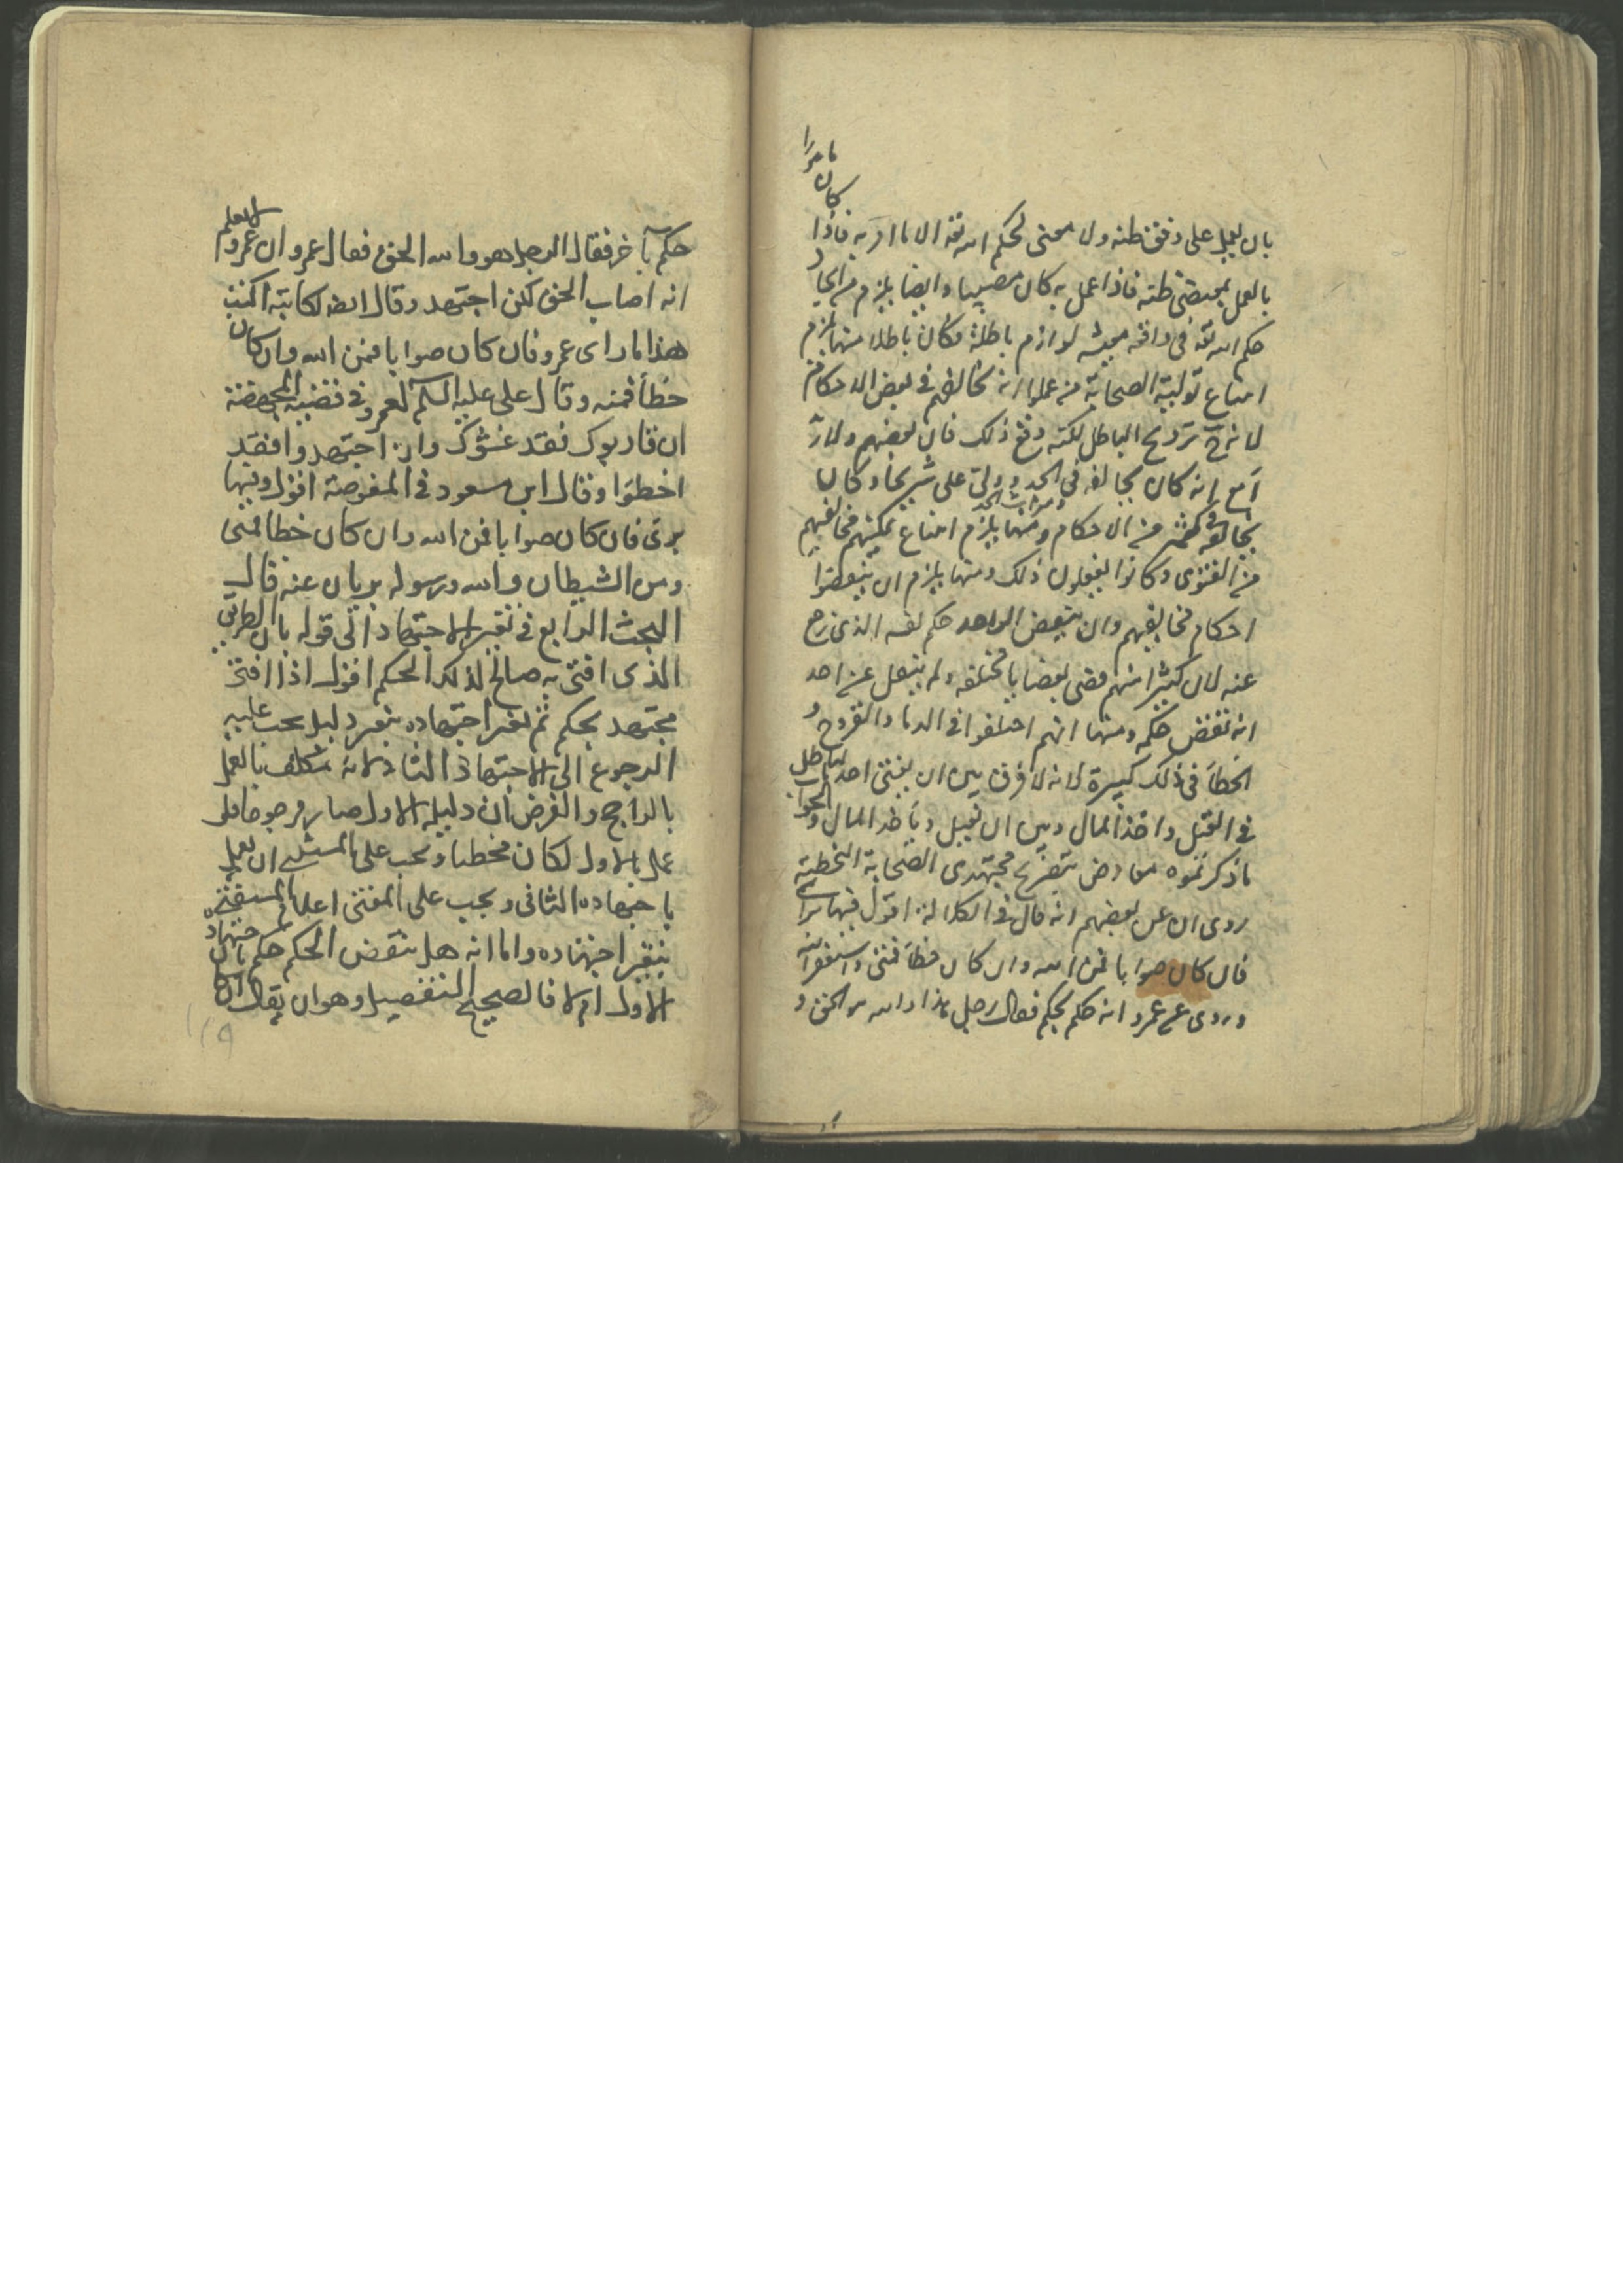 كان مامورا
بان يعمل على وفق ظنه ولا معنى لحكم الله تعه الا ما امر به فاذا
بالعمل بمقتضى ظنه فاذا عمل به كان مصيبا وايضا يلزم من
حكم الله تعه فى واقعه معينه لوازم باطلة فكان باطلا منها يلزم
امتناع تولية الصحابة من علموا انه يخالفهم فى بعض الاحكام
لانه ح ترويج الباطل لكنه وقع ذلك فان بعضهم
مع انه كان يخالفه فى الجد وولى على شريحا وكان
يخالفه فى كثير من الاحكام ومنها يلزم امتناع تمكينهم مخالفيهم
من الفتوى وكانوا يفعلون ذلك ومنها يلزم ان ينقضوا
احكام مخالفيهم وان ينقض الواحد حكم نفسه الذى رجع
عنه لان كثيرا منهم قضى بقضايا مختلفه ولم ينقل عن احد
انه نقض حكمه ومنها انهم اختلفوا فى الدما والفروج و
الخطأ فى ذلك كبيرة لانه لا فرق بين ان يفتى احد بالباطل
فى القتل واخذ المال وبين ان يقتل وياخذ المال والجواب
ما ذكرتموه معارض بتصريح مجتهدى الصحابة التخطية
روى ان عن بعضهم انه قال فى الكلالة اقول فيها برأيى
فان كان صوابا فمن الله وان كان خطأ فمنى واستغفر الله
وروى عن عمرو انه حكم بحكم فقال رجل هذا والله هو الحق و
حكم بآخر فقال الرجل هو والله الحق فقال عمرو ان عمرو لا يعلم
انه اصاب الحق لكن اجتهد وقال ايضا لكاتبه اكتب
هذا ما راى عمرو فان كان صوابا فمن الله وان كان
خطأ فمنه وقال على عليه السلم لعمرو فى قضية المجهضة
ان قاربوك فقد غشوك وان اجتهدوا فقد
اخطؤا وقال ابن مسعود فى المفوضة اقول فيها
برئى فان كان صوابا فمن الله وان كان خطا فمنى
ومن الشيطان والله ورسوله بريان عنه قال
البحث الرابع فى تغير الاجتهاد الى قوله بان الطريق
الذى افتى به صالح لذلك الحكم اقول اذا افتى
مجتهد بحكم ثم تغير اجتهاده بتغير دليل يجب عليه
الرجوع الى الاجتهاد الثانى لانه مكلف بالعمل
بالراجح والفرض ان دليله الاول صار مرجوحا فلو
عمل بالاول لكان مخطيا ويجب على المستفتى ان يعمل
باجتهاده الثانى ويجب على المفتى اعلام المستفتى
بتغير اجتهاده واما انه هل ينقض الحكم حكم الاجتهاد
الاول ام لا فالصحيح التفصيل وهو ان يقال ان
١١٩